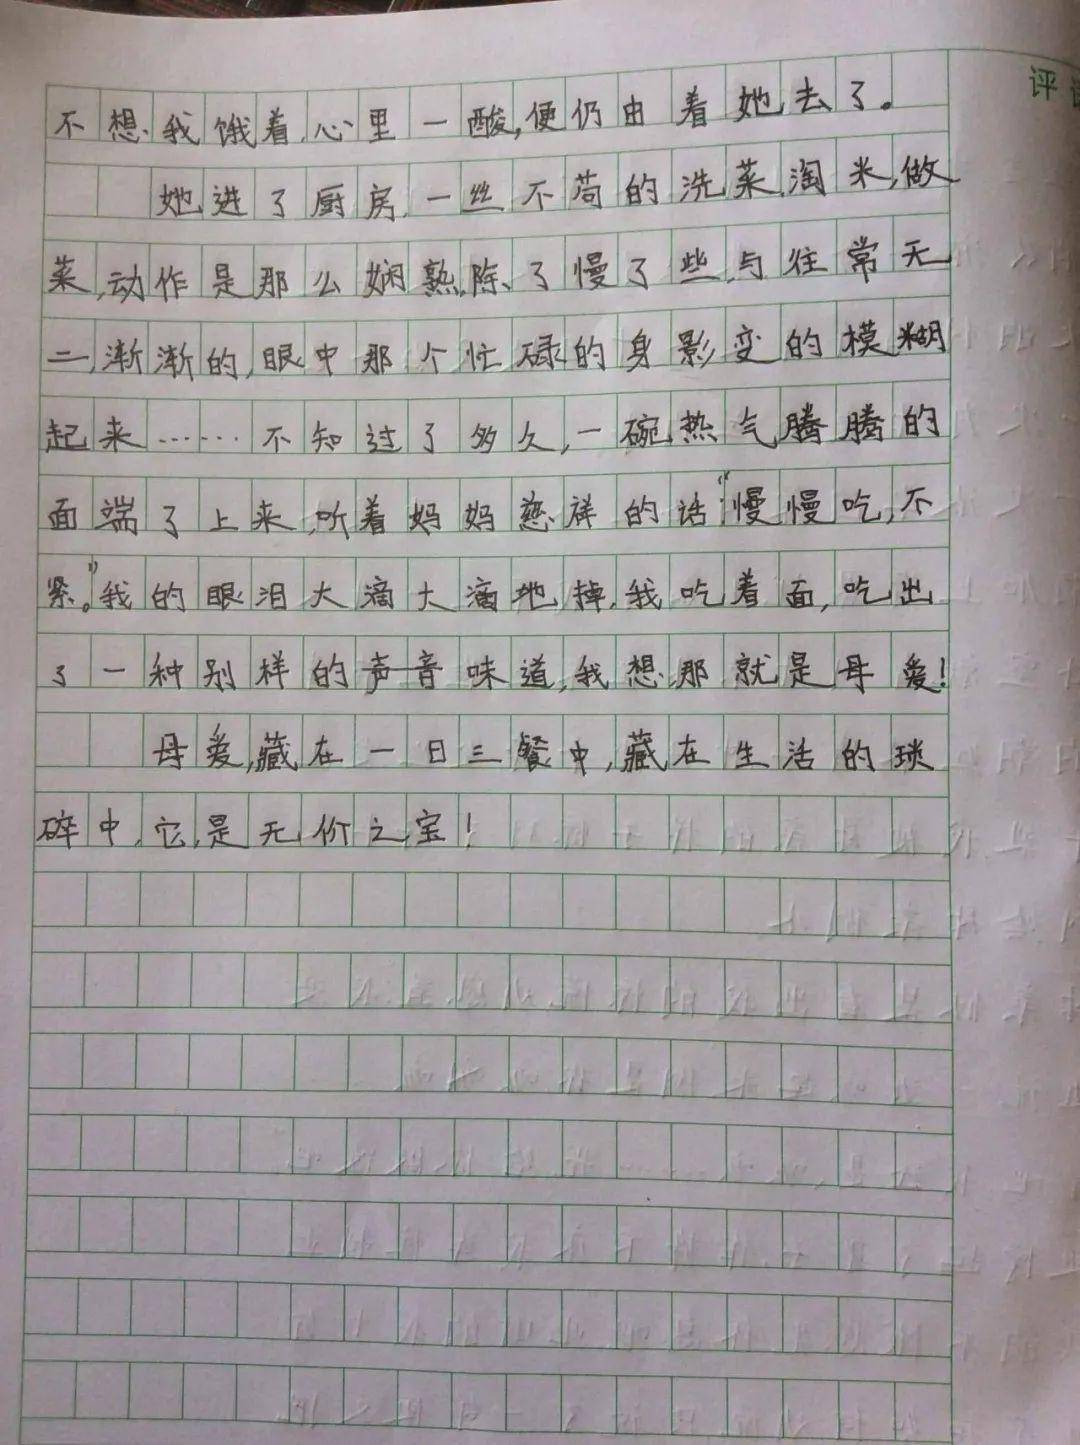 评
不想我饿着,心里一酸,便仍由着她去了。
她进了厨房,一丝不苟的洗菜,淘米,做
菜,动作是那么娴熟,除了慢了些,与往常无
二,渐渐的,眼中那个忙碌的身影变的模糊
起来……不知过了多久,一碗热气腾腾的
面端了上来,听着妈妈慈祥的话“慢慢吃,不
紧。”我的眼泪大滴大滴地掉,我吃着面,吃出
了一种别样的声音味道,我想,那就是母爱!
母爱,藏在一日三餐中,藏在生活的琐
碎中,它是无价之宝!